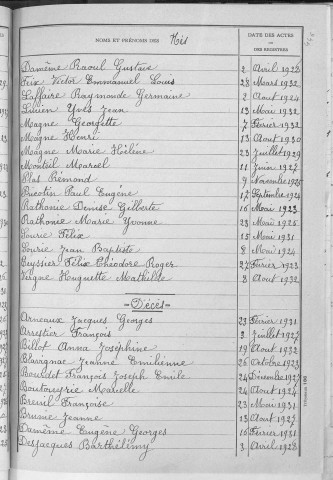 NOMS ET PRÉNOMS DES Nés
DATE DES ACTES
OU
DES REGISTRES
Damême Raoul Gustave 2 Avril 1922
Feix Victor Emmanuel Louis 28 Mars 1932
Laffaire Raymonde Germaine 2 Août 1924
Lucien Yves Jean 13 Mai 1932
Magne Georgette 7 Février 1932
Moigne Henri 13 Août 1930
Moigne Marie Hélène 23 Juillet 1929
Monteil Marcel 11 Juin 1927
Plat Rémond 9 Novembre 1925
Pricotin Paul Eugène 17 Septembre 1924
Rathonie Denise Gilberte 16 Mai 1923
Rathonie Marie Yvonne 23 Mai 1925
Sourie Félix 15 Mai 1931
Sourie Jean Baptiste 8 Mai 1924
Teyssier Félix Théodore Roger 27 Février 1923
Vergne Huguette Mathilde 8 Août 1932
Décès
Arneaux Jacques Georges 23 Février 1931
Arrestier François 3 Juillet 1927
Billot Anna Joséphine 19 Août 1932
Blavignac Jeanne Emilienne 26 Octobre 1923
Bouldet François Joseph Emile 24 Décembre 1927
Boutouyrie Marcelle 24 Août 1924
Breuil Françoise 2 Mai 1931
Brunie Jeanne 13 Août 1927
Damême Eugène Georges 16 Février 1931
Desjacques Barthélémy 3 Avril 1928